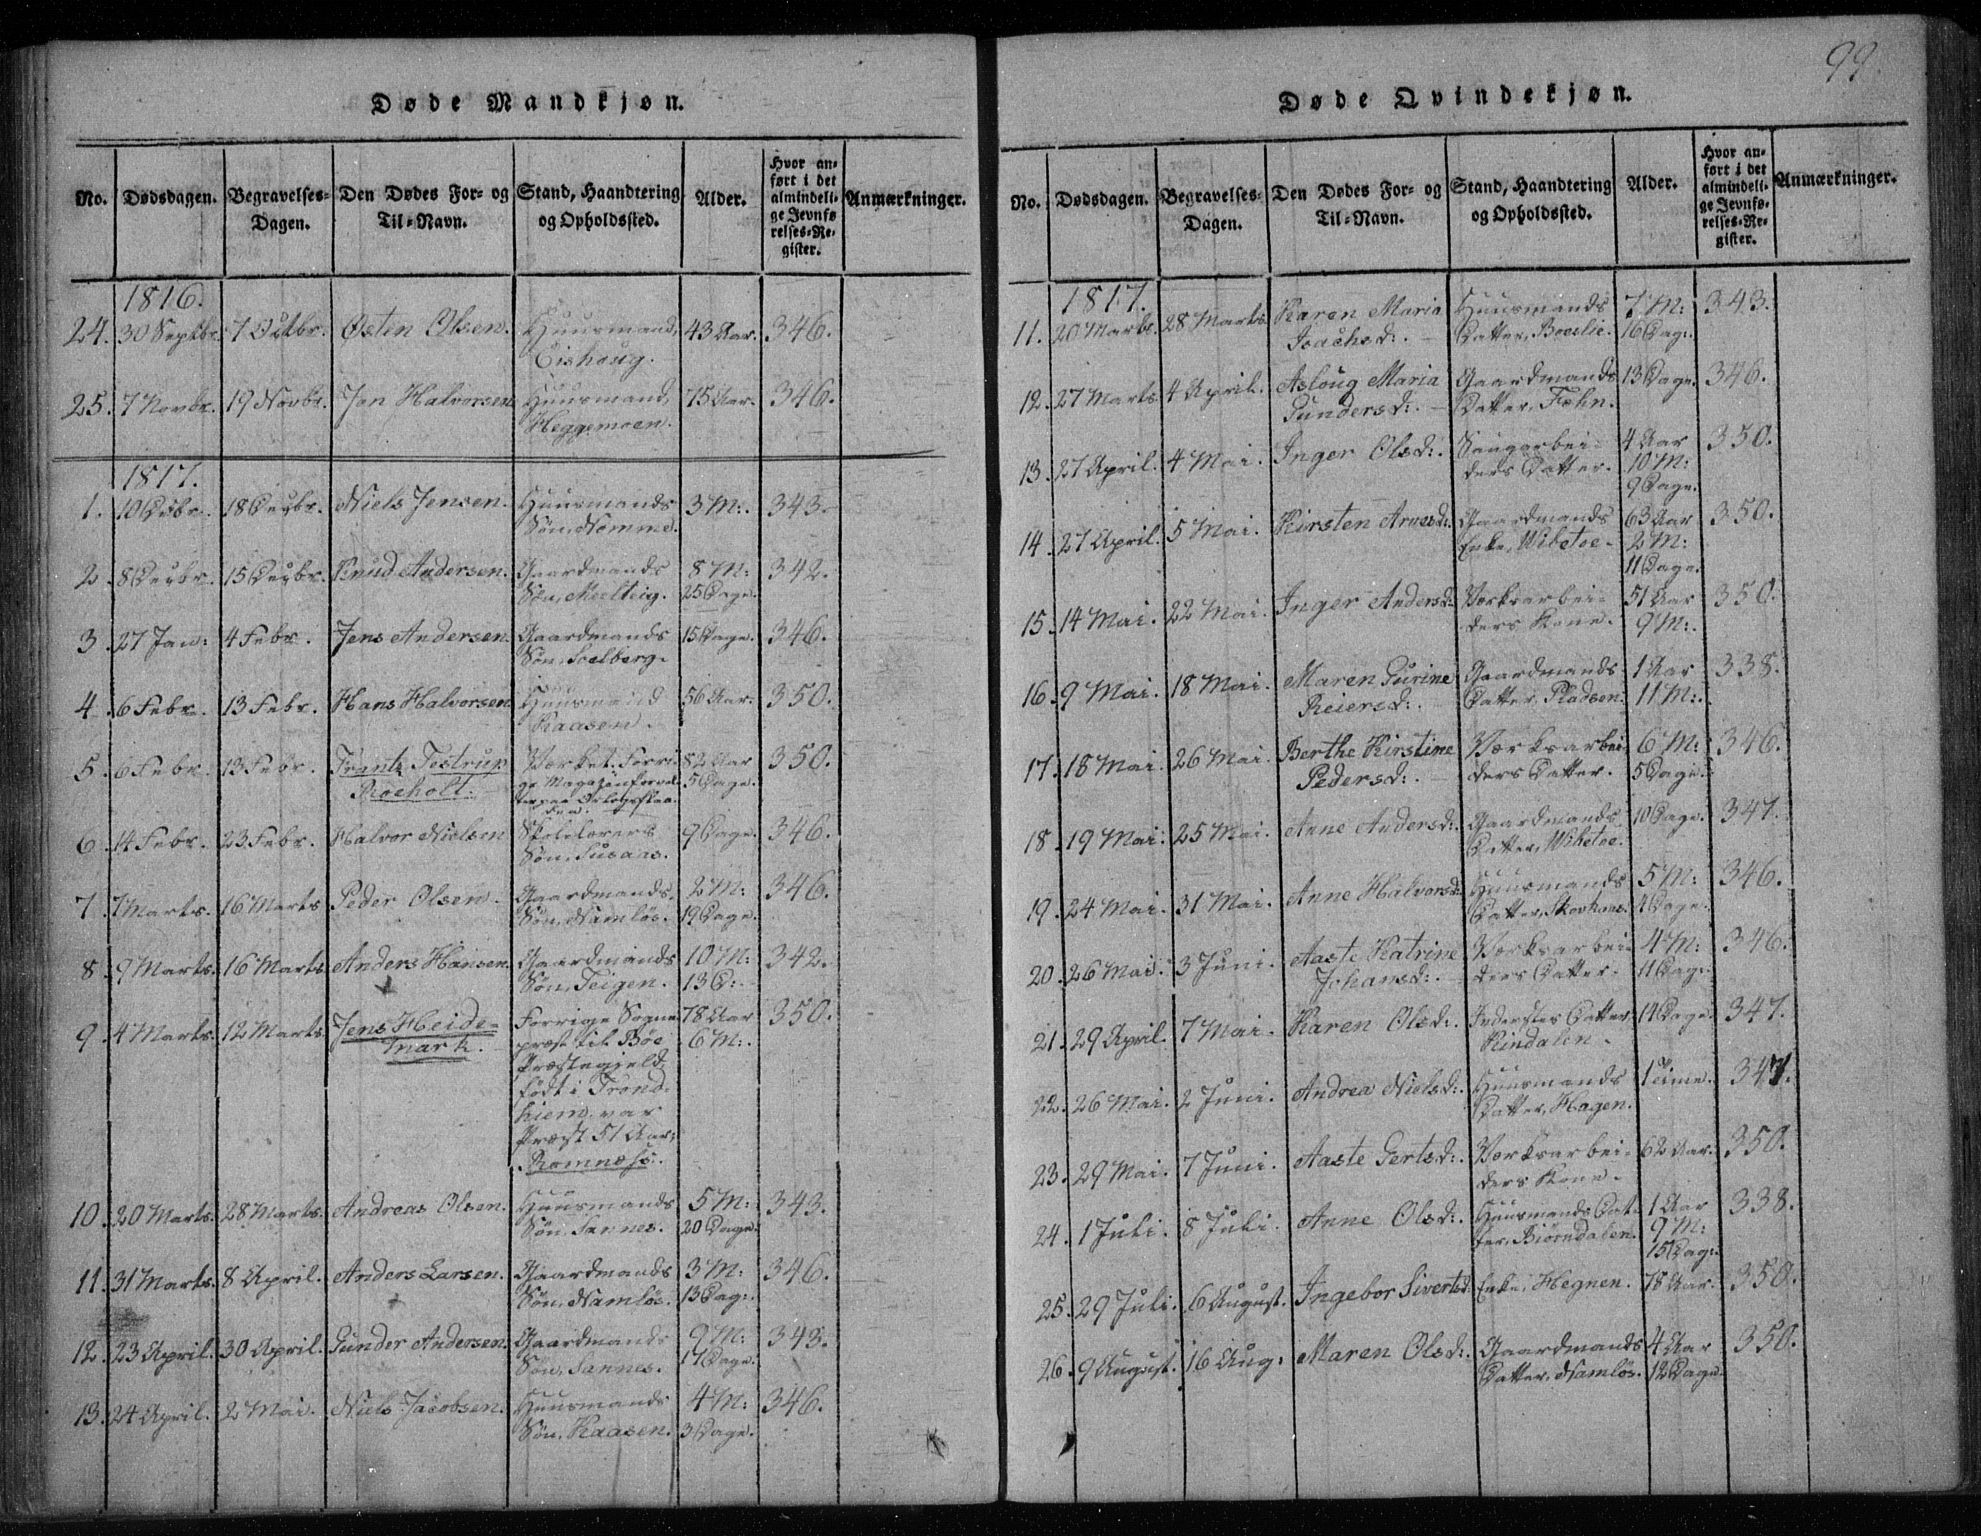 99.
Døde Mandkjøn.
No. Dødsdagen. Begravelses-Dagen. Den Dødes For- og Til-Navn. Stand, Haandtering og Opholdssted. Alder. Hvor anført i det almindelige Jevnførelses-Register. Anmærkninger.
1816.
24. 30 Septbr. 7 Octbr. Østen Olsen. Huusmand, 43 Aar. 346.
Eishoug.
25. 7 Novbr. 19 Novbr. Jon Halvorsen Huusmand, 75 Aar. 346.
Heggemoen.
1817.
1. 18 Decbr. Niels Jensen. Huusmands 3 M: 343.
Søn, Nomme.
2. 8 Decbr. 15 Decbr. Knud Andersen. Gaardmands 8 M: 342.
Søn, 25 Dage.
3. 27 Jan: 4 Febr. Jens Andersen. Gaardmands 15 Dage. 346.
Søn, Soelberg.
4. 6 Febr. 13 Febr. Hans Halvorsen Huusmand 56 Aar. 350.
Kaasen.
5. 6 Febr. 13 Febr. Frantz Testrup Værket Forri- 82 Aar 350.
Roeholt. ge Magazinforval- 5 Dage.
ter
6. 14 Febr. 23 Febr. Halvor Nielsen Skolelærers 9 Dage. 346.
Søn, Susaas.
7. 7 Marts. 16 Marts Peder Olsen. Gaardmands 2 M: 346.
Søn, Namløs. 19 Dage.
8. 9 Marts. 16 Marts Anders Hansen. Gaardmands 10 M: 342.
Søn, Teigen. 13 D:
9. 4 Marts. 12 Marts Jens Heide- Forrige Sogne- 78 Aar 350.
mark. præst til Bøe 6 M:
Præstegield,
født i Trond-
hiem, var
Præst 51 Aar,
Romnæss.
10. 20 Marts. 28 Marts. Andreas Olsen. Huusmands 5 M: 343.
Søn, Sannes. 20 Dage.
11. 31 Marts. 8 April. Anders Larsen. Gaardmands 3 M: 346.
Søn, Namløs. 13 Dag:
12. 23 April. 30 April. Gunder Andersen. Gaardmands 9 M: 343.
Søn, Sannes. 17 Dage.
13. 24 April. 2 Mai. Niels Jacobsen. Huusmands 4 M: 346.
Søn, Kaasen. 3 Dage.
Døde Qvindekjøn.
No. Dødsdagen. Begravelses-Dagen. Den Dødes For- og Til-Navn. Stand, Haandtering og Opholdssted. Alder. Hvor anført i det almindelige Jevnførelses-Register. Anmærkninger.
1817.
11. 20 Marts. 28 Marts. Karen Maria Huusmands 7 M: 343.
Isachsd:. Datter, Boeslie. 16 Dag:
12. 27 Marts. 4 April. Asloug Maria Gaardmands 13 Dage. 346.
Gundersd:. Datter, Fehn.
13. 27 April. 4 Mai. Inger Olsd:. Saugarbei- 4 Aar 350.
ders Datter. 10 M:
9 Dage.
14. 27 April. 5 Mai. Kirsten Arnesd:. Gaardmands 63 Aar 350.
Enke, Wibetoe. 2 M:
11 Dage.
15. 14 Mai. 22 Mai. Inger Andersd: Værksarbei- 51 Aar 350.
ders Kone. 9 M:
16. 9 Mai. 18 Mai. Maren Gurine Gaardmands 1 Aar 338.
Reiersd:. Datter, Pladsen. 11 M:
17. 18 Mai. 26 Mai. Berthe Kirstine Værksarbei- 6 M: 346.
Pedersd:. ders Datter. 5 Dage.
18. 19 Mai. 25 Mai. Anne Andersd:. Gaardmands 10 Dage. 347.
Datter, Wibetoe.
19. 24 Mai. 31 Mai. Anne Halvorsd: Huusmands 5 M: 346.
Datter, 4 Dage.
20. 26 Mai. 3 Juni. Aaste Katrine Værksarbei- 4 M: 346.
Johansd:. ders Datter. 11 Dag:
21. 29 April. 7 Mai. Karen Olsd:. Inderstes Datter 14 Dage. 347.
Rindalen.
22. 26 Mai. 2 Juni. Andrea Nielsd:. Huusmands 1 Time. 347.
Datter, Hagen.
23. 29 Mai. 7 Juni. Aaste Gertsd:. Værksarbei- 62 Aar. 350.
ders Kone.
24. 1 Juli. 8 Juli. Anne Olsd:. Huusmands Dat- 1 Aar 338.
ter, Biørndalen. 9 M:
15 Dag:
25. 29 Juli. 6 August. Ingebor Sivertsd: Enke, Hegnen. 78 Aar. 350.
26. 9 August. 16 Aug: Maren Olsd:. Gaardmands 4 Aar 350.
Datter, Namløs. 12 Dage.